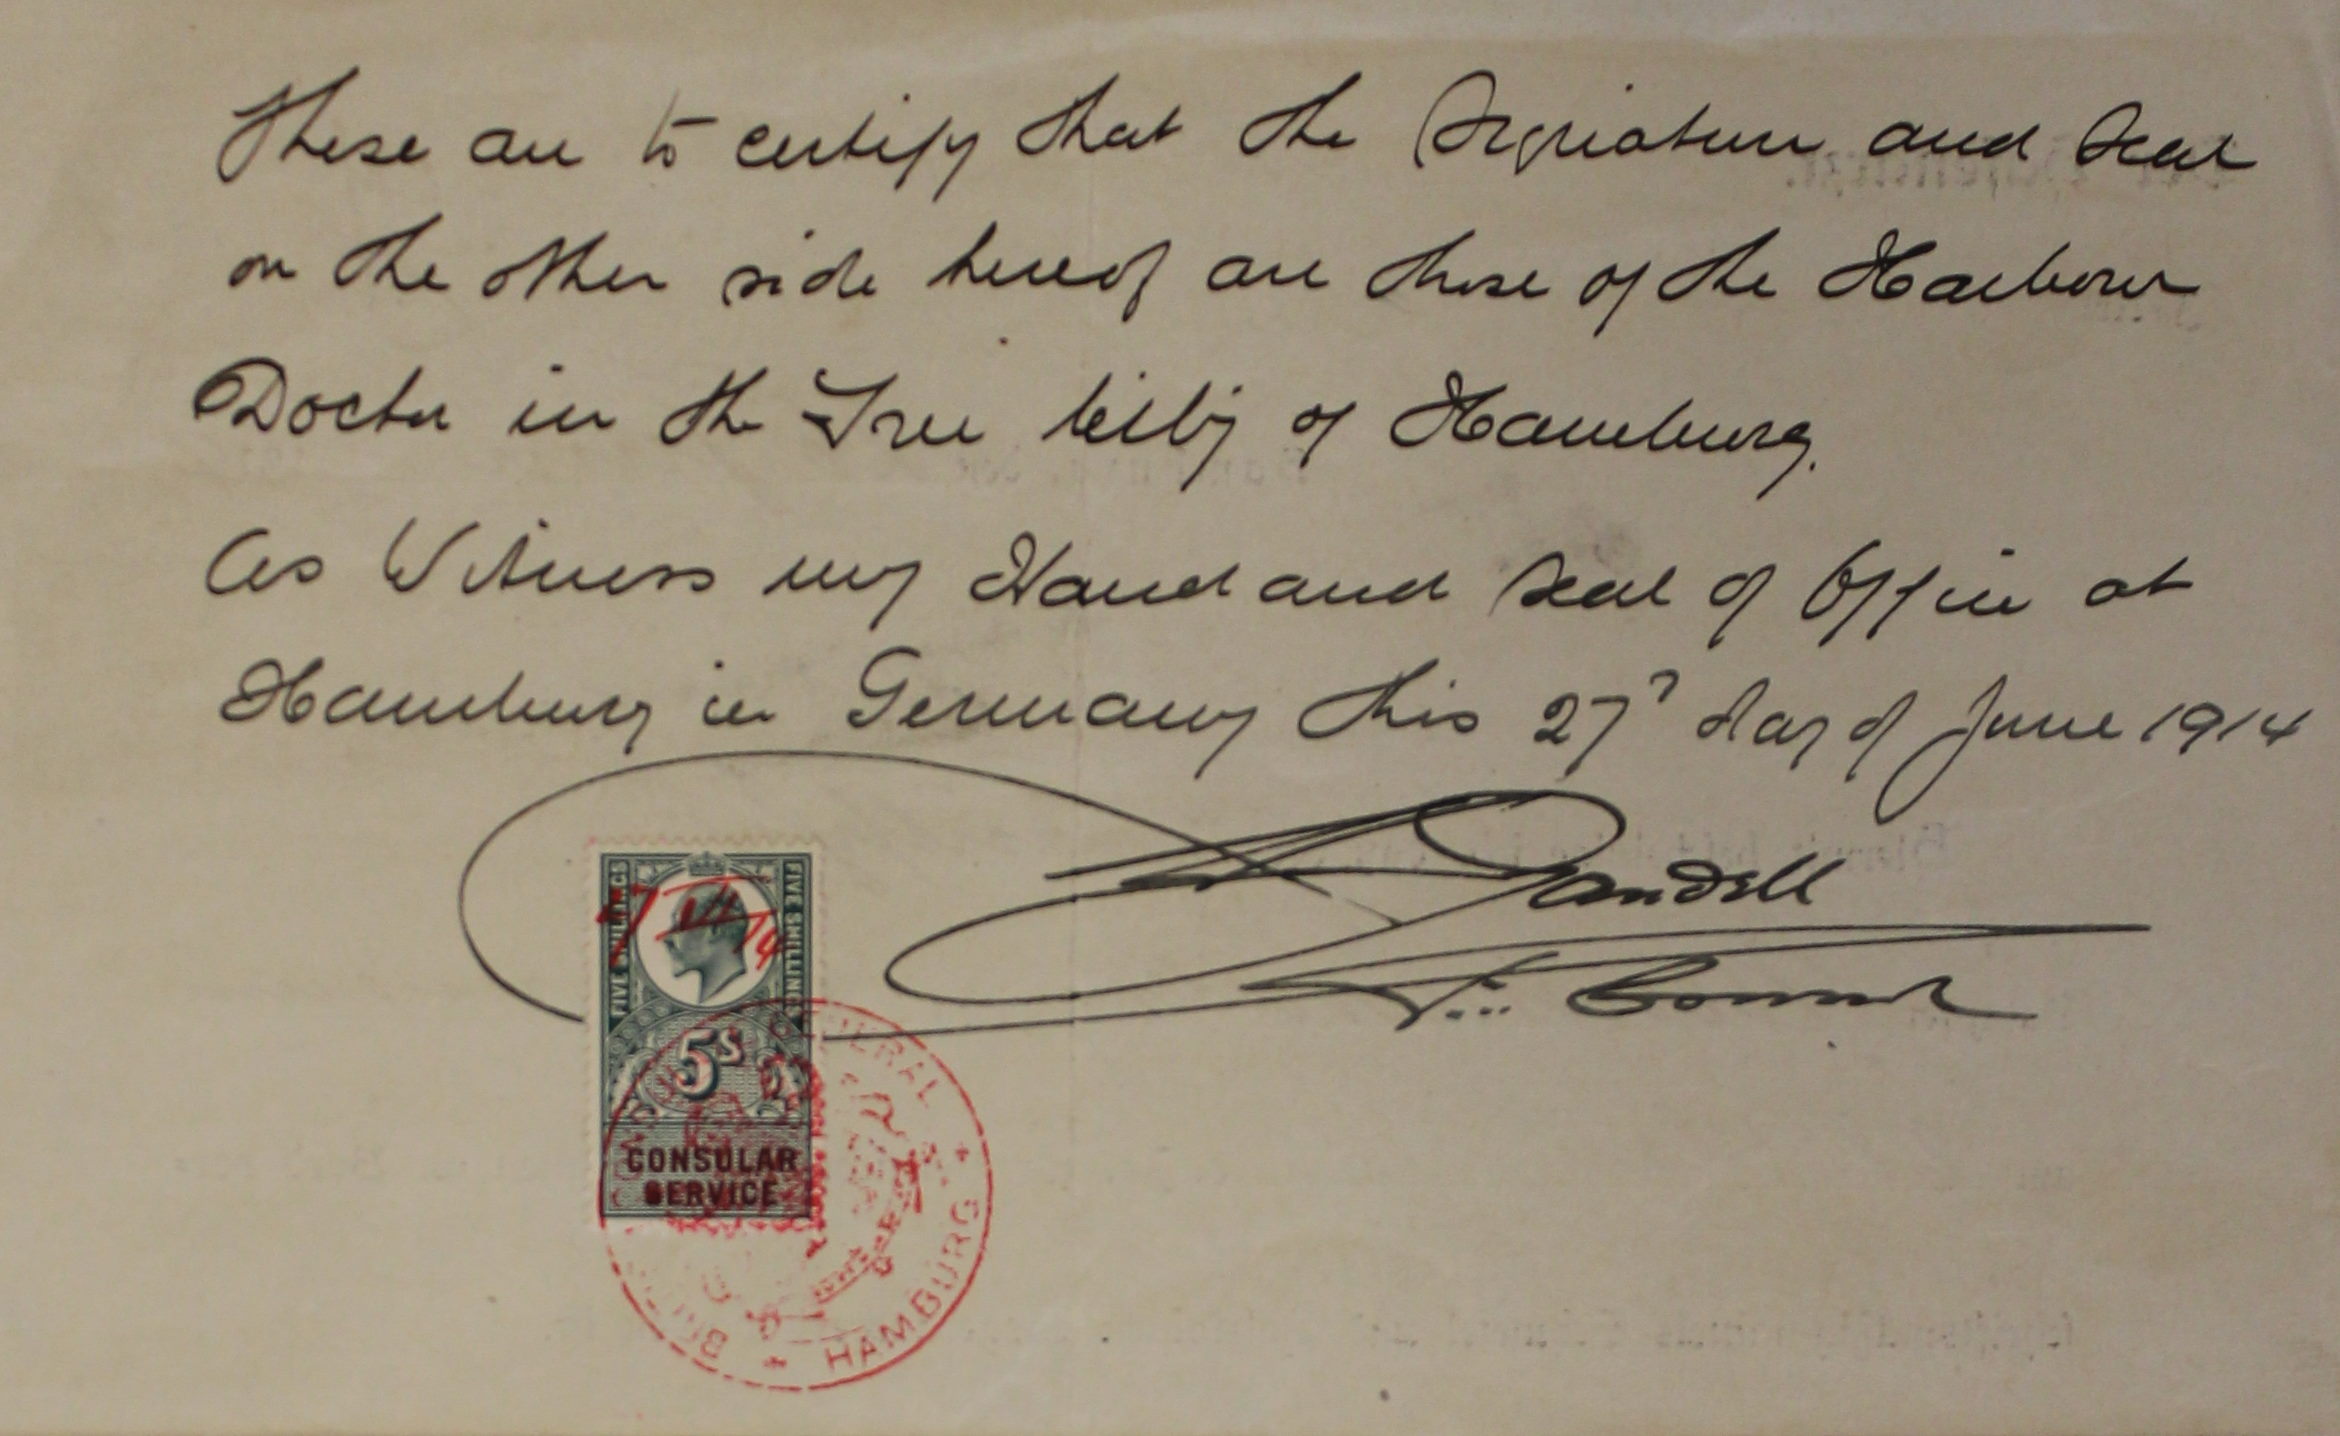 These are to certify that the Signature and Seal
on the other side hereof are those of the Harbour
Doctor in the Free City of Hamburg.
As Witness my Hand and Seal of Office at
Hamburg in Germany this 27 day of June 1914
Vice Consul
FIVE SHILLINGS
FIVE SHILLINGS
5s
CONSULAR
SERVICE
HAMBURG